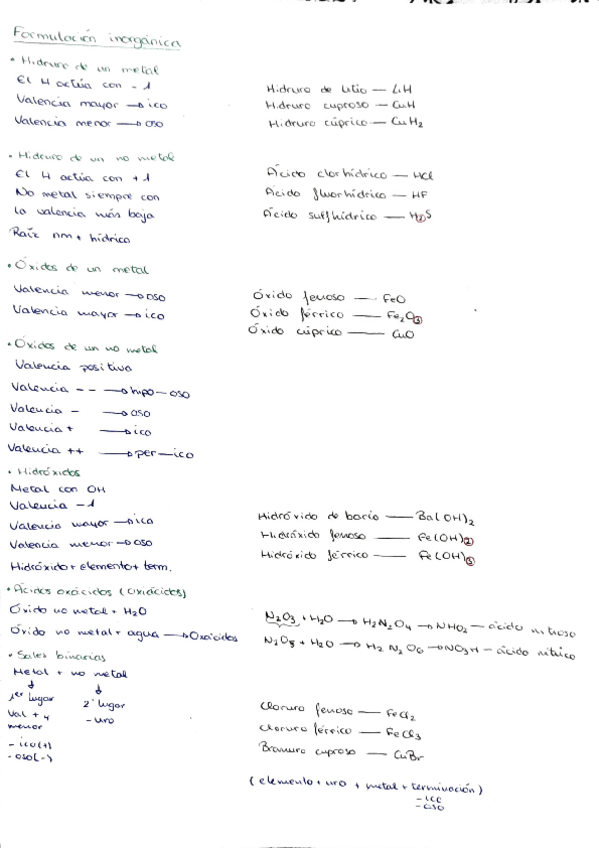 Formulación inorgánica
• Hidruro de un metal
El H actúa con -1
Valencia mayor → ico
Valencia menor → oso
Hidruro de litio — LiH
Hidruro cuproso — CuH
Hidruro cúprico — CuH2
• Hidruro de un no metal
El H actúa con +1
No metal siempre con
la valencia más baja
Raíz nm + hídrico
Ácido clorhídrico — HCl
Ácido fluorhídrico — HF
Ácido sulfhídrico — H2S
• Óxidos de un metal
Valencia menor → oso
Valencia mayor → ico
Óxido ferroso — FeO
Óxido férrico — Fe2O3
Óxido cúprico — CuO
• Óxidos de un no metal
Valencia positiva
Valencia -- → hipo-oso
Valencia - → oso
Valencia + → ico
Valencia ++ → per-ico
• Hidróxidos
Metal con OH
Valencia -1
Valencia mayor → ico
Valencia menor → oso
Hidróxido + elemento + term.
Hidróxido de bario — Ba(OH)2
Hidróxido ferroso — Fe(OH)2
Hidróxido férrico — Fe(OH)3
• Ácidos oxácidos (oxiácidos)
Óxido no metal + H2O
Óxido no metal + agua → Oxácidos
N2O3 + H2O → H2N2O4 → NHO2 — ácido nitroso
N2O5 + H2O → H2N2O6 → NO3H — ácido nítrico
• Sales binarias
Metal + no metal
1er lugar
Val + y
menor
- ico (+)
- oso (-)
2º lugar
- uro
Cloruro ferroso — FeCl2
Cloruro férrico — FeCl3
Bromuro cuproso — CuBr
(elemento + uro + metal + terminación)
- ico
- oso